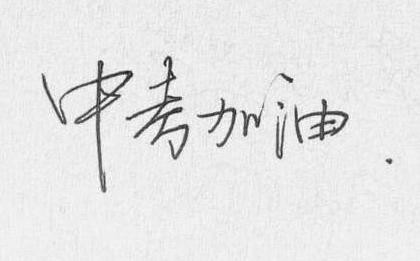 中考加油.